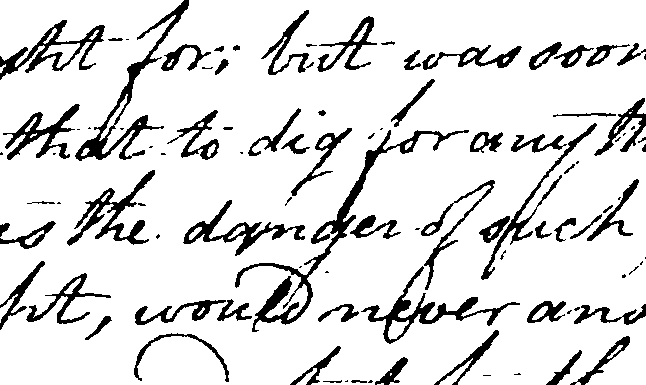 ght for; but was soon
that to dig for any th
is the danger of such
ht, would never ano
but by th